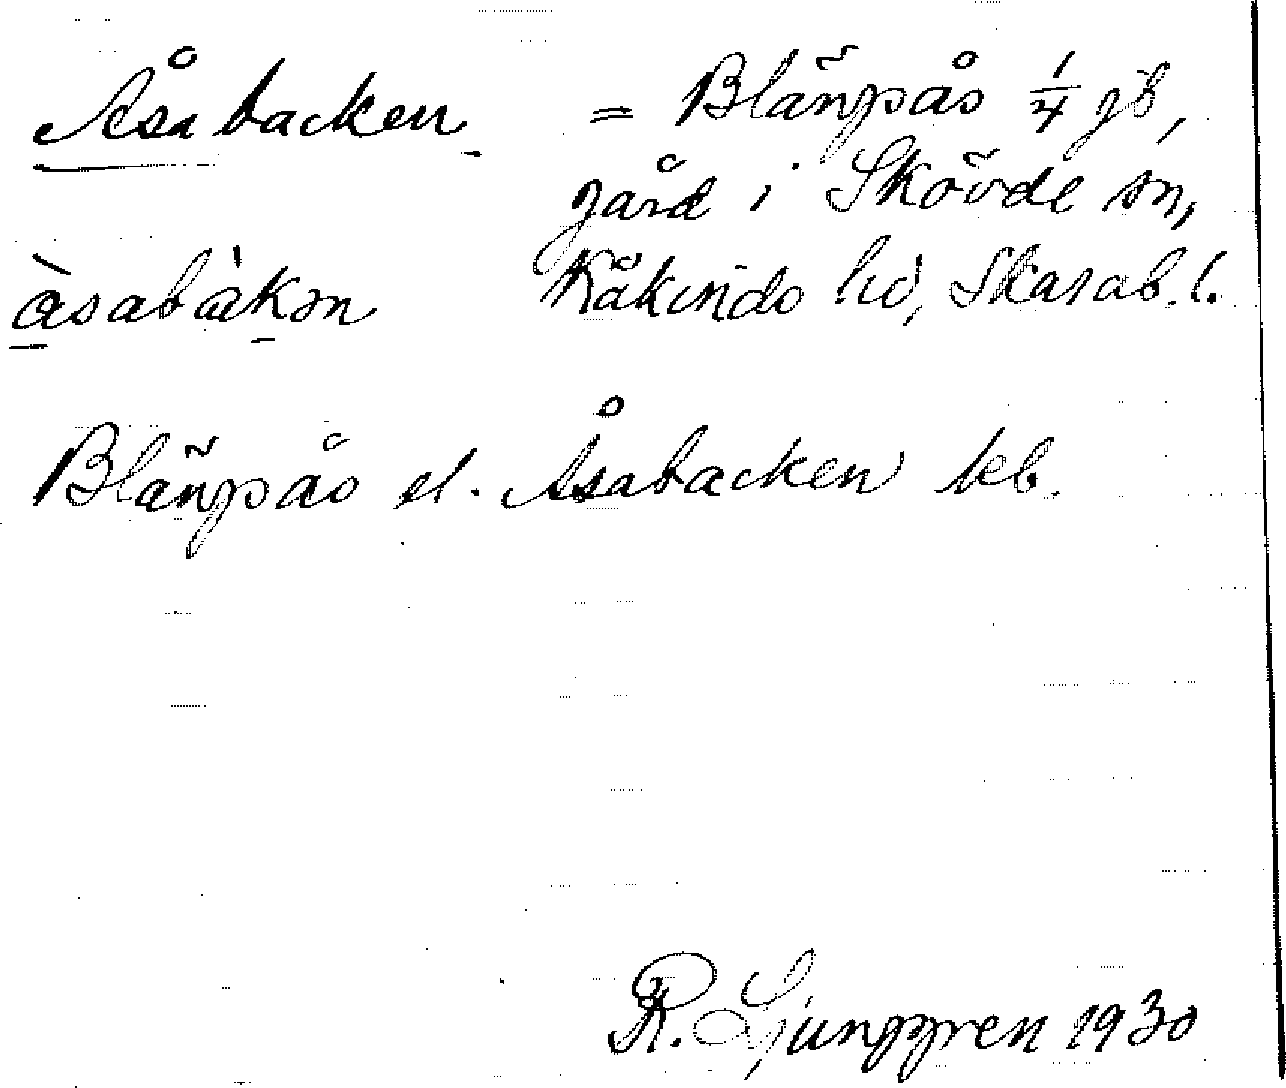 Åsabacken = Blängsås 1/4 gb,
gård i Skövde sn,
àsabàkən Kåkinds hd, Skarab. l.
Blängsås el. Åsabacken kb.
R. Ljunggren 1930